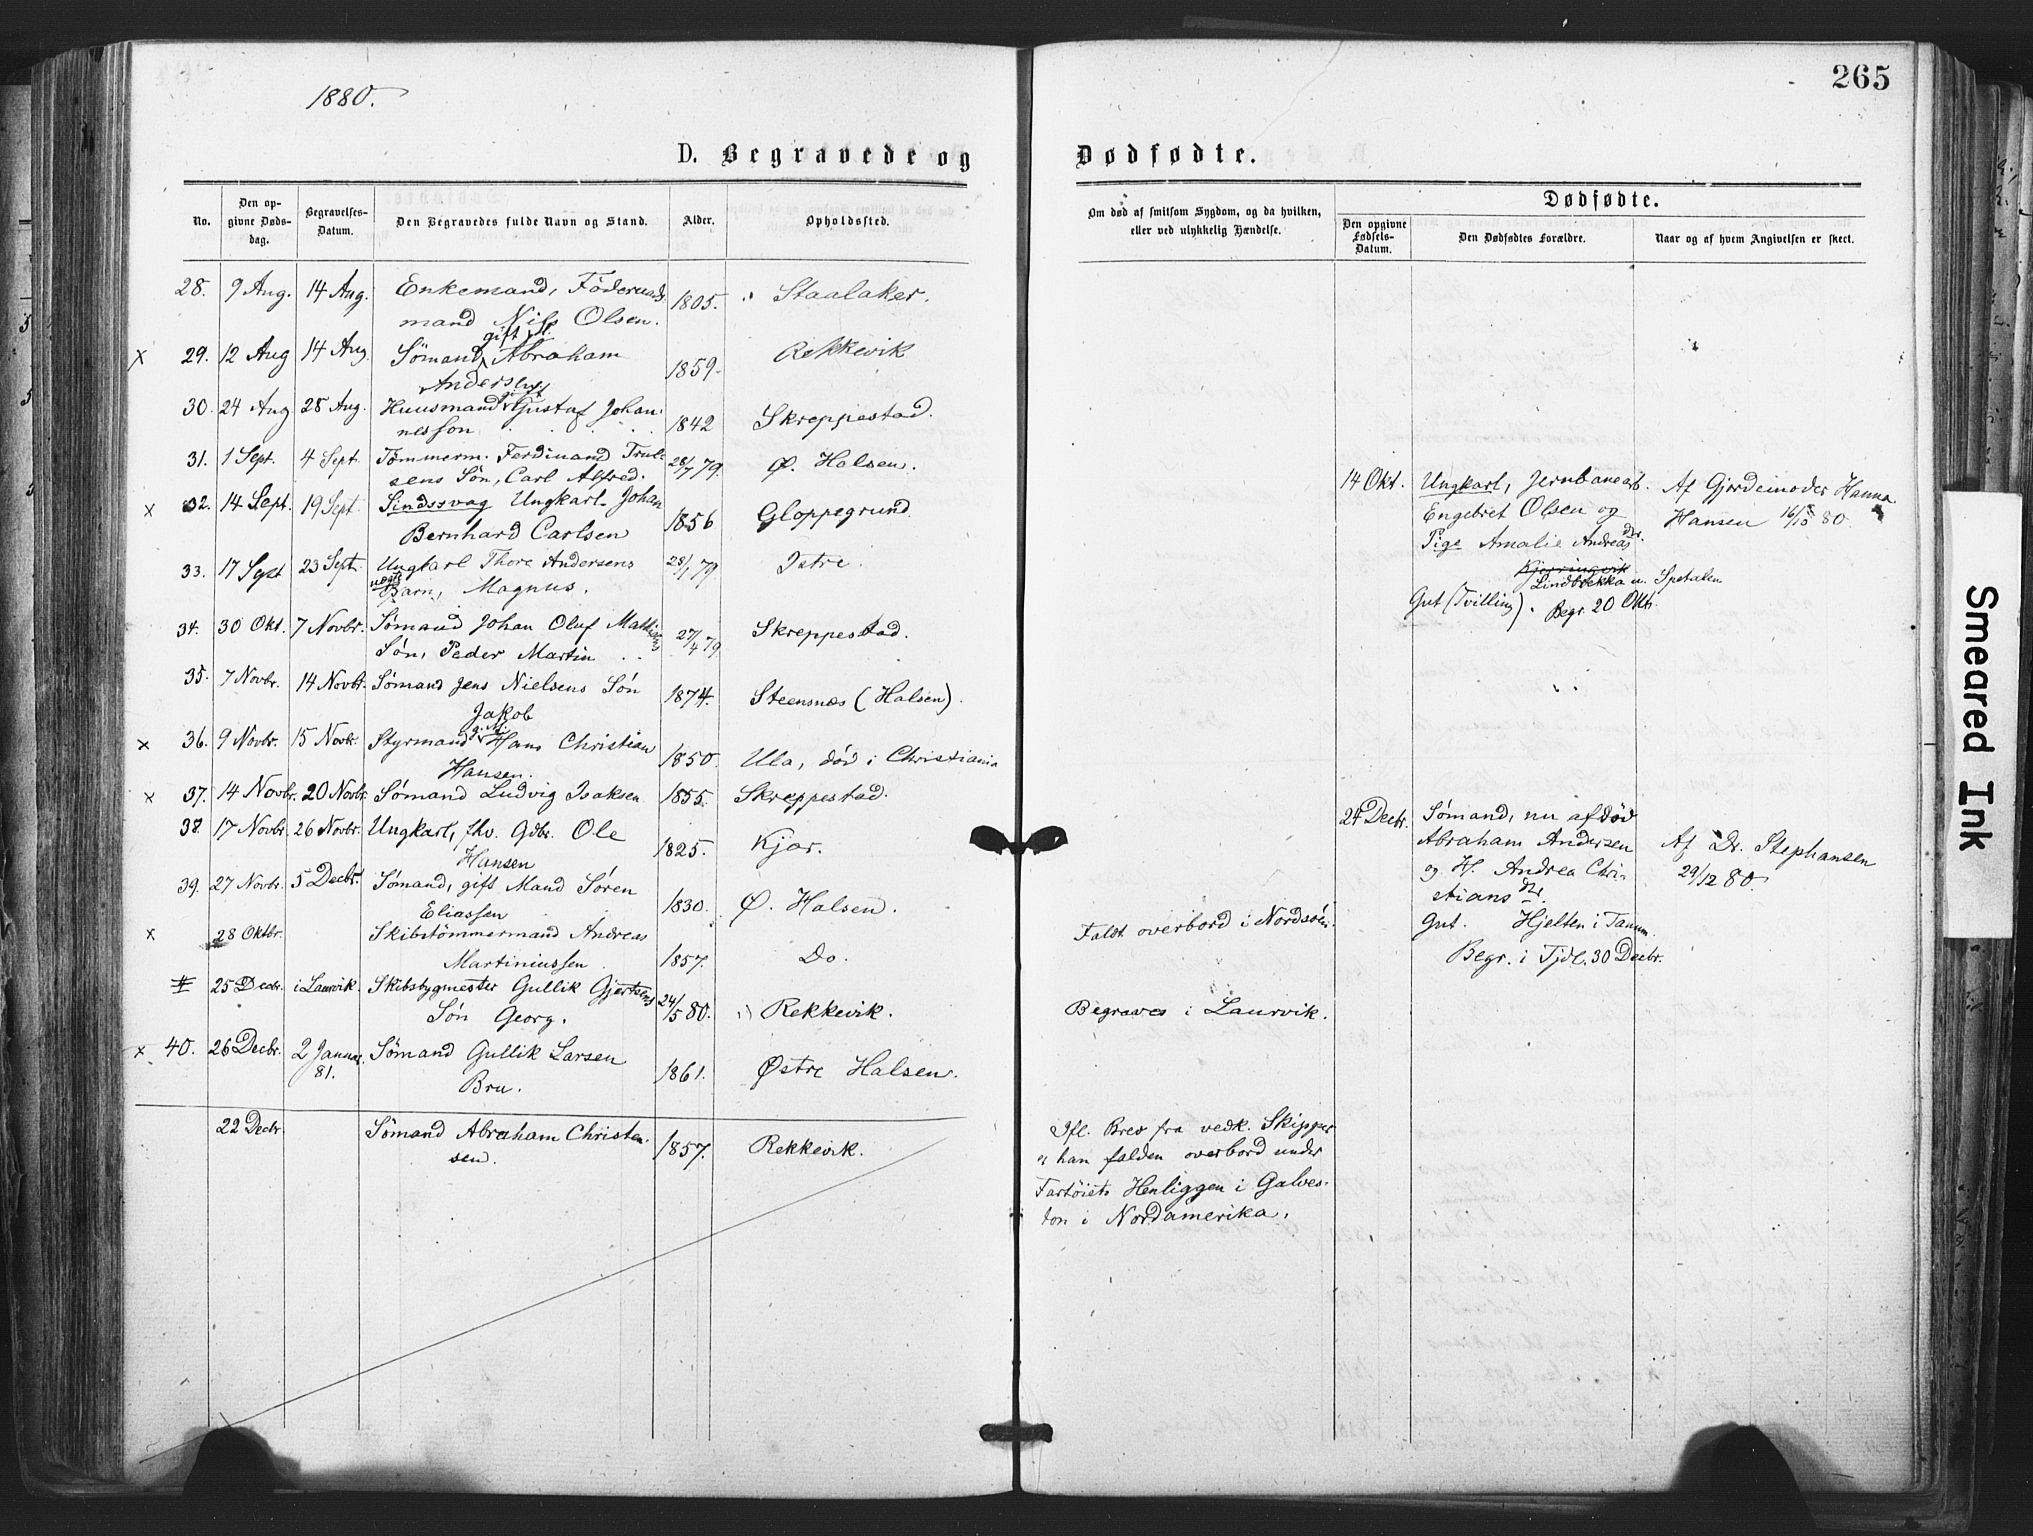 1880.
265
D. Begravede og Dødfødte.
No.
Den opgivne Dødsdag.
Begravelses-Datum.
Den Begravedes fulde Navn og Stand.
Alder.
Opholdssted.
Om død af smitsom Sygdom, og da hvilken, eller ved ulykkelig Hændelse.
Dødfødte.
Den opgivne Fødsels-Datum.
Den Dødfødtes Forældre.
Naar og af hvem Angivelsen er skeet.
28. 9 Aug. 14 Aug. Enkemand, Föderaads- 1805. Staalaker.
mand Nils Olsen.
gift
x 29. 12 Aug 14 Aug Sømand Abraham 1859 Rekkevik
Andersen
gift
30. 24 Aug 28 Aug. Huusmand Gustaf Johan- 1842 Skreppestad.
nesson
31. 1 Sept. 4 Sept. Tømmerm. Ferdinand Trul- 28/7 79. Ø. Halsen.
sens Søn, Carl Alfred.
x 32. 14 Sept. 19 Sept. Sindssvag Ungkarl Johan 1856 Gloppegrund
Bernhard Carlsen
33. 17 Sept 23 Sept. Ungkarl Thore Andersens 28/1 79. Istre.
uægte Barn, Magnus.
34. 30 Okt. 7 Novbr. Sømand Johan Oluf Mathisens 27/4 79 Skreppestad.
Søn, Peder Martin
35. 7 Novbr. 14 Novbr. Sømand Jens Nielsens Søn 1874. Steensnæs (Halsen).
Jakob
x 36. 9 Novbr. 15 Novbr. Styrmand g. M. Hans Christian 1850. Ula, død i Christiania
Hansen.
x 37. 14 Novbr. 20 Novbr. Sømand Ludvig Isaksen 1855. Skreppestad.
38. 17 Novbr. 26 Novbr. Ungkarl, fhv. Gdbr. Ole 1825. Kjær.
Hansen
39. 27 Novbr. 5 Decbr. Sømand, gift Mand Søren 1830. Ø. Halsen.
Eliassen
x 28 Oktbr. Skibstömmermand Andreas 1857. Do. Faldt overbord i Nordsöen.
Martiniussen
# 25 Decbr. i Laurvik. Skibsbygmester Gullik Gjertsens 24/5 80. Rekkevik. Begraves i Laurvik.
Søn Georg.
x 40. 26 Decbr. 2 Januar 81. Sømand Gullik Larsen 1861. Østre Halsen.
Bru.
22 Decbr. Sømand Abraham Christen- 1857. Rekkevik.
sen.
Ifl. Brev fra vedk. Skipper
er han falden overbord under
Fartøiets Henliggen i Galves-
ton i Nordamerika.
14 Okt. Ungkarl, Jernbanearb. Af Gjordemoder Hanna
Engebret Olsen og Hansen 16/10 80.
Pige Amalie Andreasdtr.
Lindbekka u. Spetalen
Gut (Tvilling). Begr. 20 Okt.
24 Decbr. Sømand, nu afdød
Abraham Andersen Af Dr. Stephansen
og H. Andrea Chri- 29/12 80.
stiansdtr.
Gut. Hjelten i Tanum.
Begr. i Tjdl. 30 Decbr.
Smeared Ink